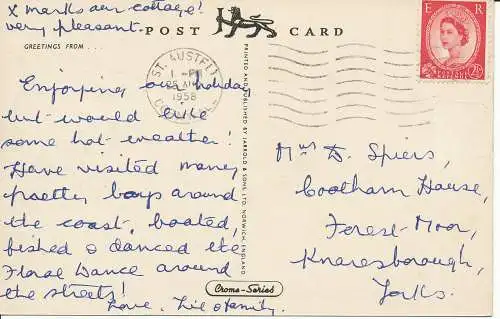 X marks our cottage!
very pleasant.
POST CARD
GREETINGS FROM ...
E R
ST. AUSTELL
1 - PM
1958
CORNWALL
Enjoying our holiday
but would like
some hot weather!
Have visited many
pretty bays around
the coast, boated,
fished & danced the
Floral Dance around
the streets!
Love,
& family.
PRINTED AND PUBLISHED BY JARROLD & SONS, LTD. NORWICH, ENGLAND
Mrs D. Spiers,
Cootham House,
Forest-Moor,
Knaresborough,
Yorks.
Crome-Series